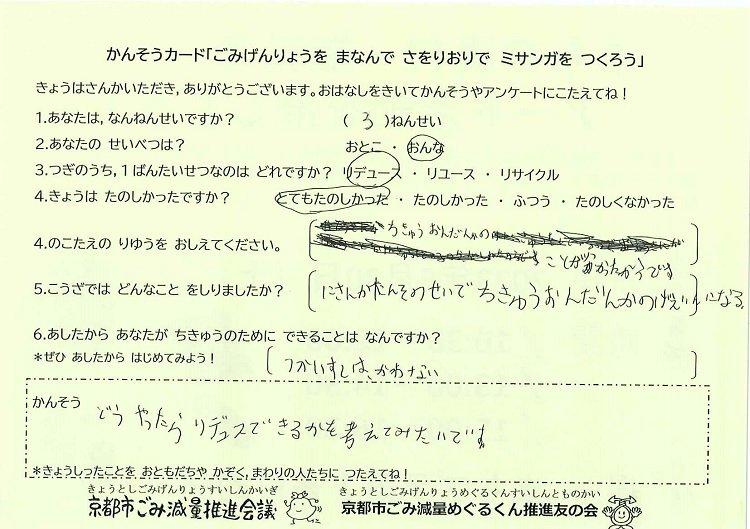 かんそうカード「ごみげんりょうを まなんで さをりおりで ミサンガを つくろう」
きょうはさんかいただき,ありがとうございます。おはなしをきいてかんそうやアンケートにこたえてね！
1.あなたは,なんねんせいですか？ （ 3 ）ねんせい
2.あなたの せいべつは？ おとこ ・ おんな
3.つぎのうち,1ばんたいせつなのは どれですか？ リデュース ・ リユース ・ リサイクル
4.きょうは たのしかったですか？ とてもたのしかった ・ たのしかった ・ ふつう ・ たのしくなかった
ちきゅうおんだんかの
4.のこたえの りゆうを おしえてください。
ことが わかたからです
5.こうざでは どんなこと をしりましたか？ にさんかたんそのせいで ちきゅうおんだんかのげんいんになる
6.あしたから あなたが ちきゅうのために できることは なんですか？
*ぜひ あしたから はじめてみよう！ つかいすしは、かわない
かんそう
どうやったらリデュスできるかを考えてみたいです
*きょうしったことを おともだちや かぞく,まわりの人たちに つたえてね！
きょうとしごみげんりょうすいしんかいぎ きょうとしごみげんりょうめぐるくんすいしんとものかい
京都市ごみ減量推進会議 京都市ごみ減量めぐるくん推進友の会